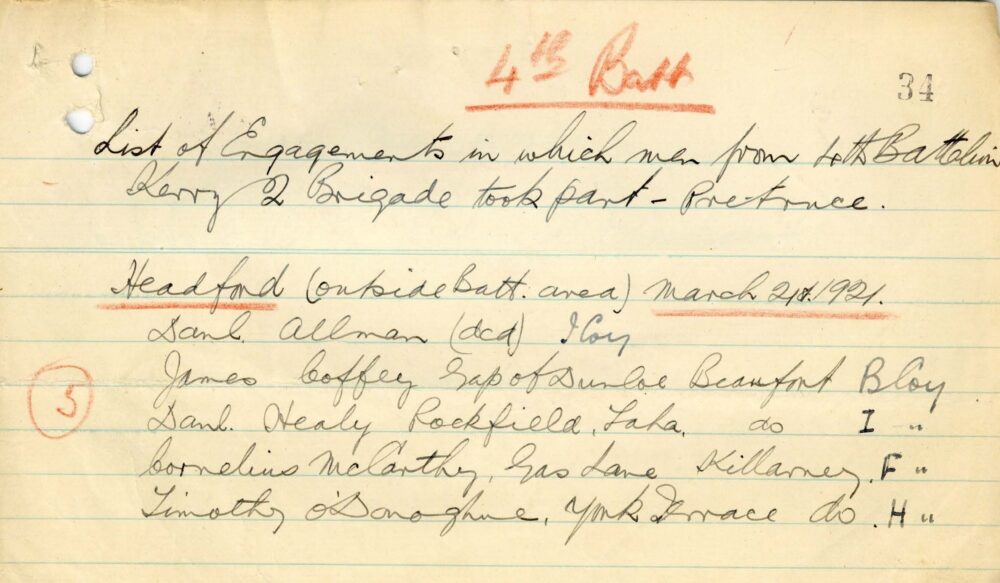 4th Batt
34
List of Engagements in which men from 4th Battalion
Kerry 2 Brigade took part - Pretruce.
Headford (outside Batt. area) March 21st. 1921.
Danl. Allman (dcd) I Coy
James Coffey Gap of Dunloe Beaufort B Coy
5
Danl. Healy Rockfield, Faha, do I "
Cornelius McCarthy, Gas Lane Killarney, F "
Timothy O'Donoghue, York Terrace do. H "